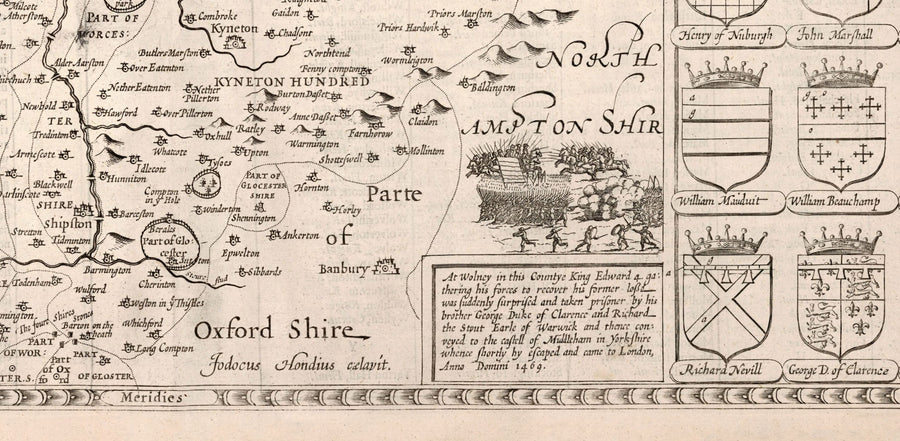 Milcote
Atherston
park
PART OF
WORCES:
Combroke
Kyneton
Gaidon
Chadsont
Priors Marston
Priors Hardwik
Butlers Marston
Northtend
Fenny compton
Wormleigton
Alder Aarston
Over Eatenton
KYNETON HUNDRED
NORTH
AMPTON SHIR
Nether Eatenton
Nether
Pillerton
Burton Dasset
Baldington
Newhold
Hawford
Over Pillerton
Rodway
Anne Dasset
TER
Tredinton
Oxhull
Ratley
Farnborow
Claidon
Whatcote
Warmington
Armescote
Idlecote
Upton
Shotteswell
Mollinton
Hunniton
Tysoes
Blackwell
Compton
in ye Hole
PART OF
GLOCESTER
SHIRE
Hornton
Parte
of
SHIRE
Shipston
Barceston
Winderton
Shennington
Horley
Stretton
Tidminton
Beralis
Part of Glo=
cester
Ankerton
Epwelton
Banbury
Barmington
Cherinton
Stoure flud
Sibbards
Todenham
Wulford
Weston in ye Thistles
The foure Shires Stones
Barton on the
heath
Whichford
PART
OF WOR:
Long Compton
Part
of Ox
fo rd
PART
OF GLOSTER
TER.S.
Oxford Shire
Jodocus Hondius cælavit.
Meridies
At Wolney in this Countye King Edward 4 ga:
thering his forces to recover his former losse
was suddenly surprised and taken prisoner by his
brother George Duke of Clarence and Richard
the Stout Earle of Warwick and thence con:
veyed to the castell of Middleham in Yorkshire
whence shortly he escaped and came to London,
Anno Domini 1469.
Henry of Nuburgh
John Marshall
a
g
g
o
William Mauduit
William Beauchamp
g
a
a
Richard Nevill
George D. of Clarence